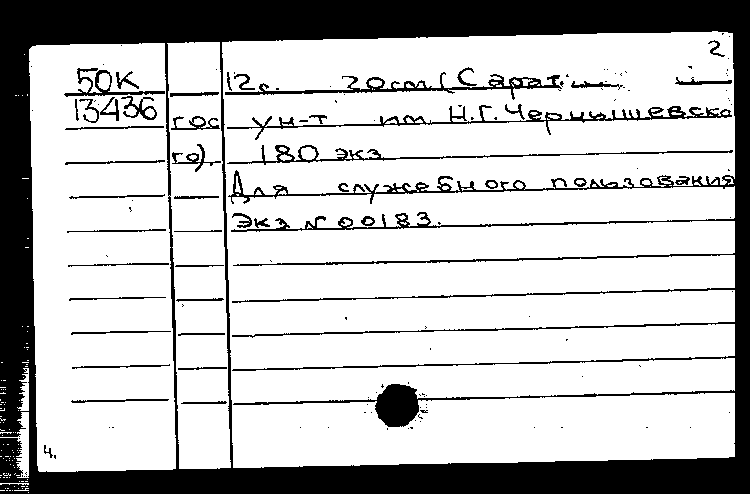 2
50К 12с. 20см. (Сарат.
13436 гос ун-т им. Н.Г.Чернышевско
го). 180 экз
Для служебного пользования
Экз № 00183.
4.